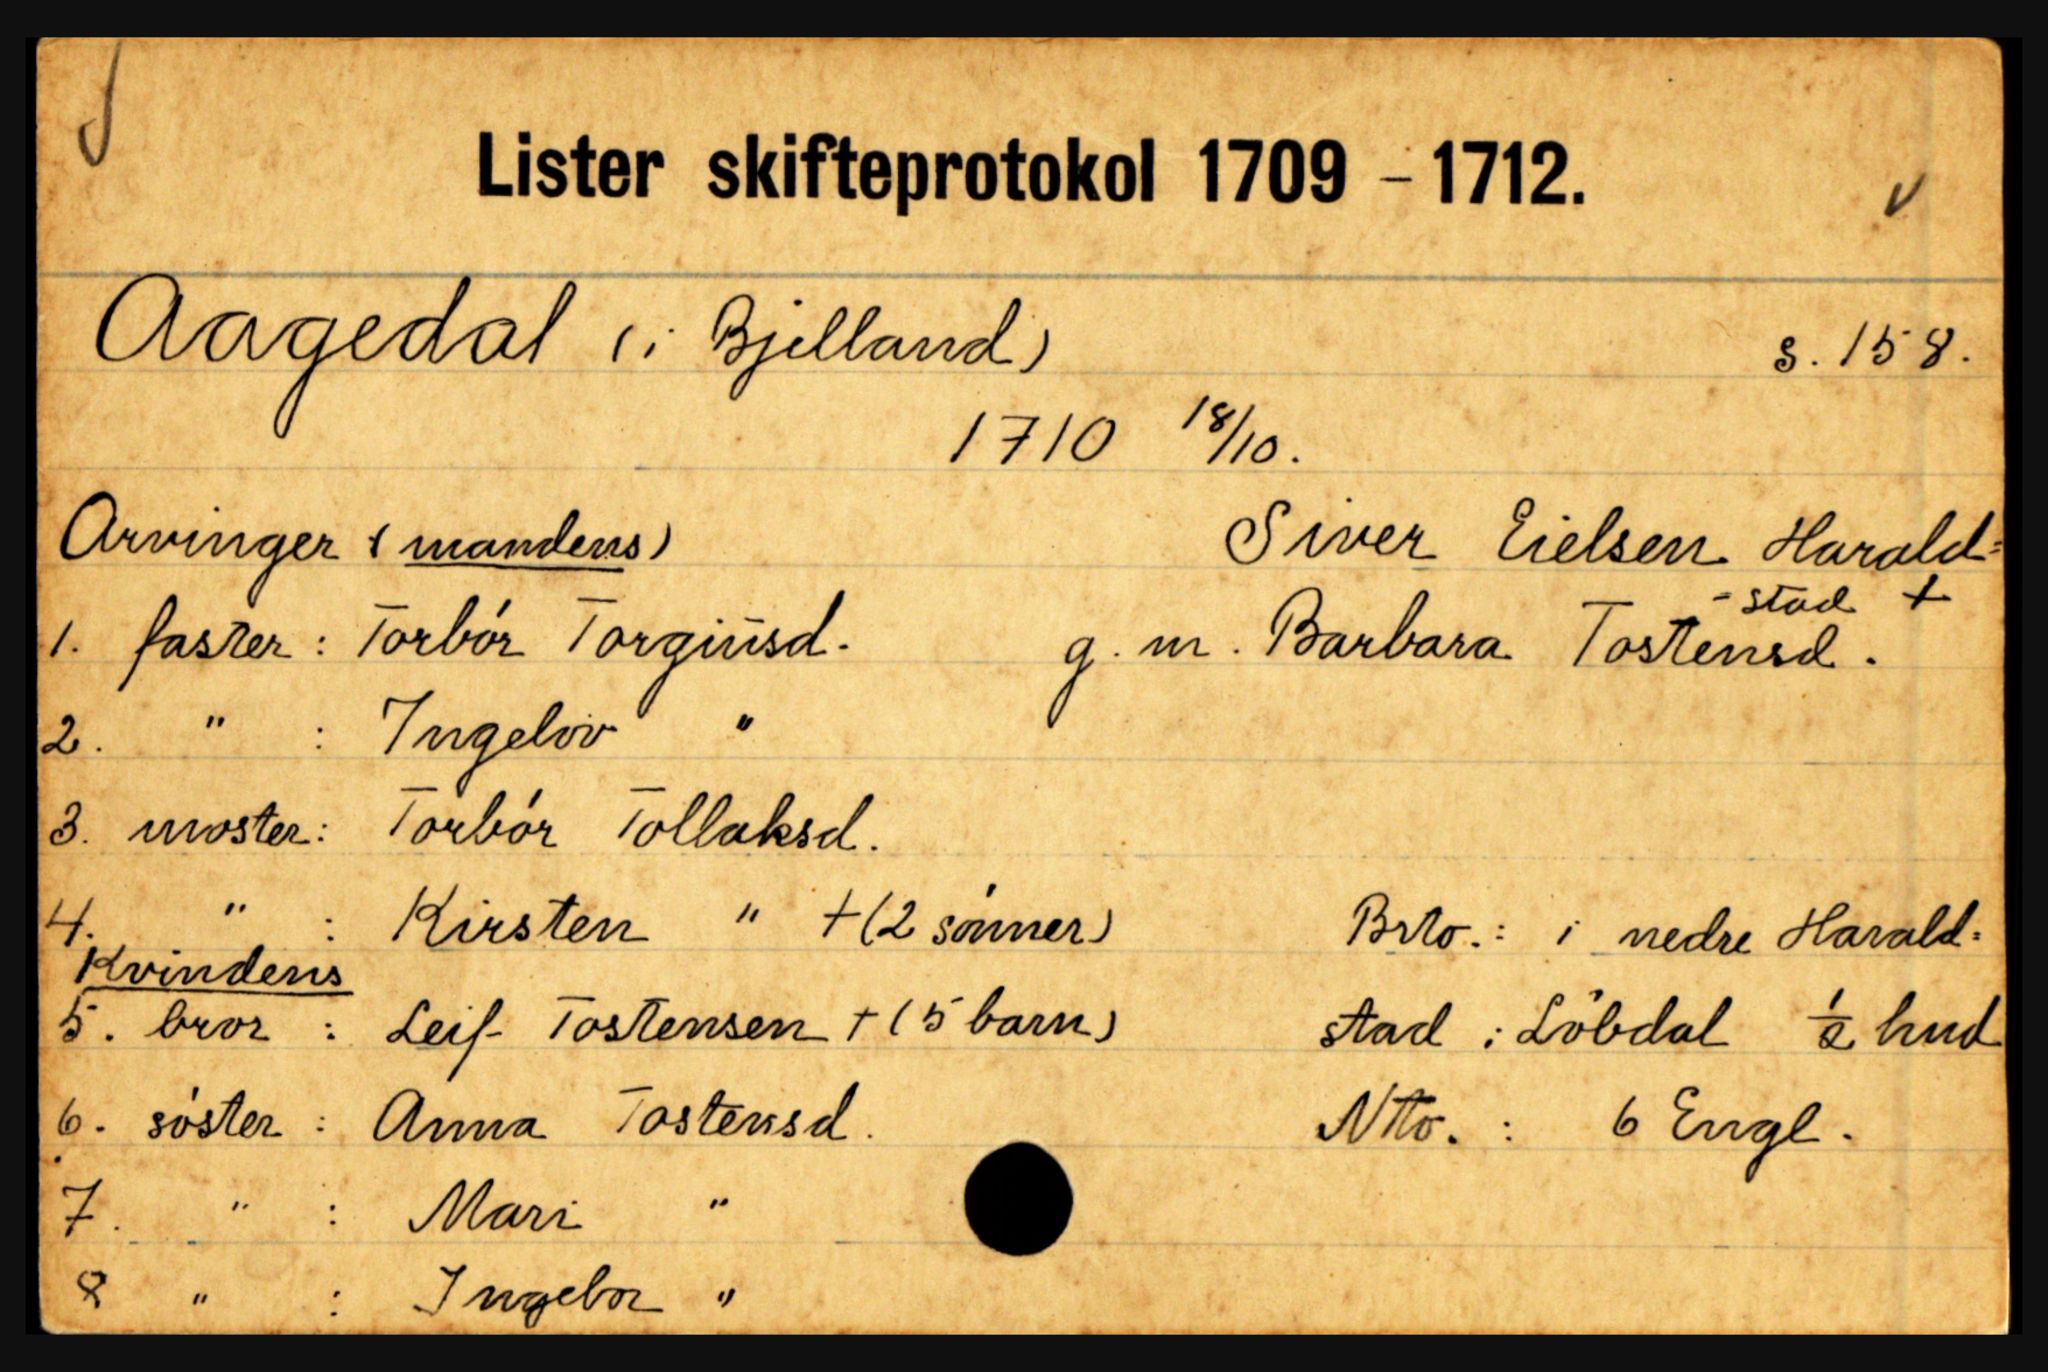 Lister skifteprotokol 1709 - 1712.
Aagedal (i Bjelland) s. 158.
1710 18/10.
Arvinger (mandens) Siver Eielsen Harald=
-stad +
1. faster: Torbór Torgiusd. g. m. Barbara Tostensd.
2. " : Ingebor "
3. moster: Torbór Tollaksd.
4. " : Kirsten " +(2 sónner) Brto.: i nedre Harald=
Kvindens
5. bror : Leif Tostensen +(5 barn) stad : Löbdal 1/2 hud
6. sóster : Anna Tostensd. Ntto. : 6 Engl.
7. " : Mari "
8 " : Ingebor "